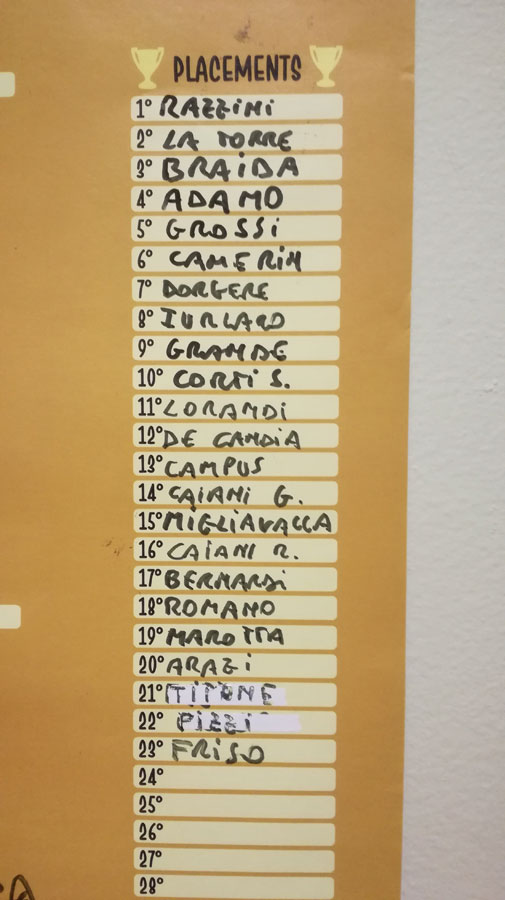 PLACEMENTS
1° RAZZINI
2° LA TORRE
3° BRAIDA
4° ADAMO
5° GROSSI
6° CAMERIN
7° DORGERE
8° IURLARO
9° GRANDE
10° CORTI S.
11° LORANDI
12° DE CANDIA
13° CAMPUS
14° CAIANI G.
15° MIGLIAVACCA
16° CAIANI R.
17° BERNARDI
18° ROMANO
19° MAROTTA
20° ARAZI
21° TITONE
22° PIZZI
23° FRISO
24°
25°
26°
27°
28°